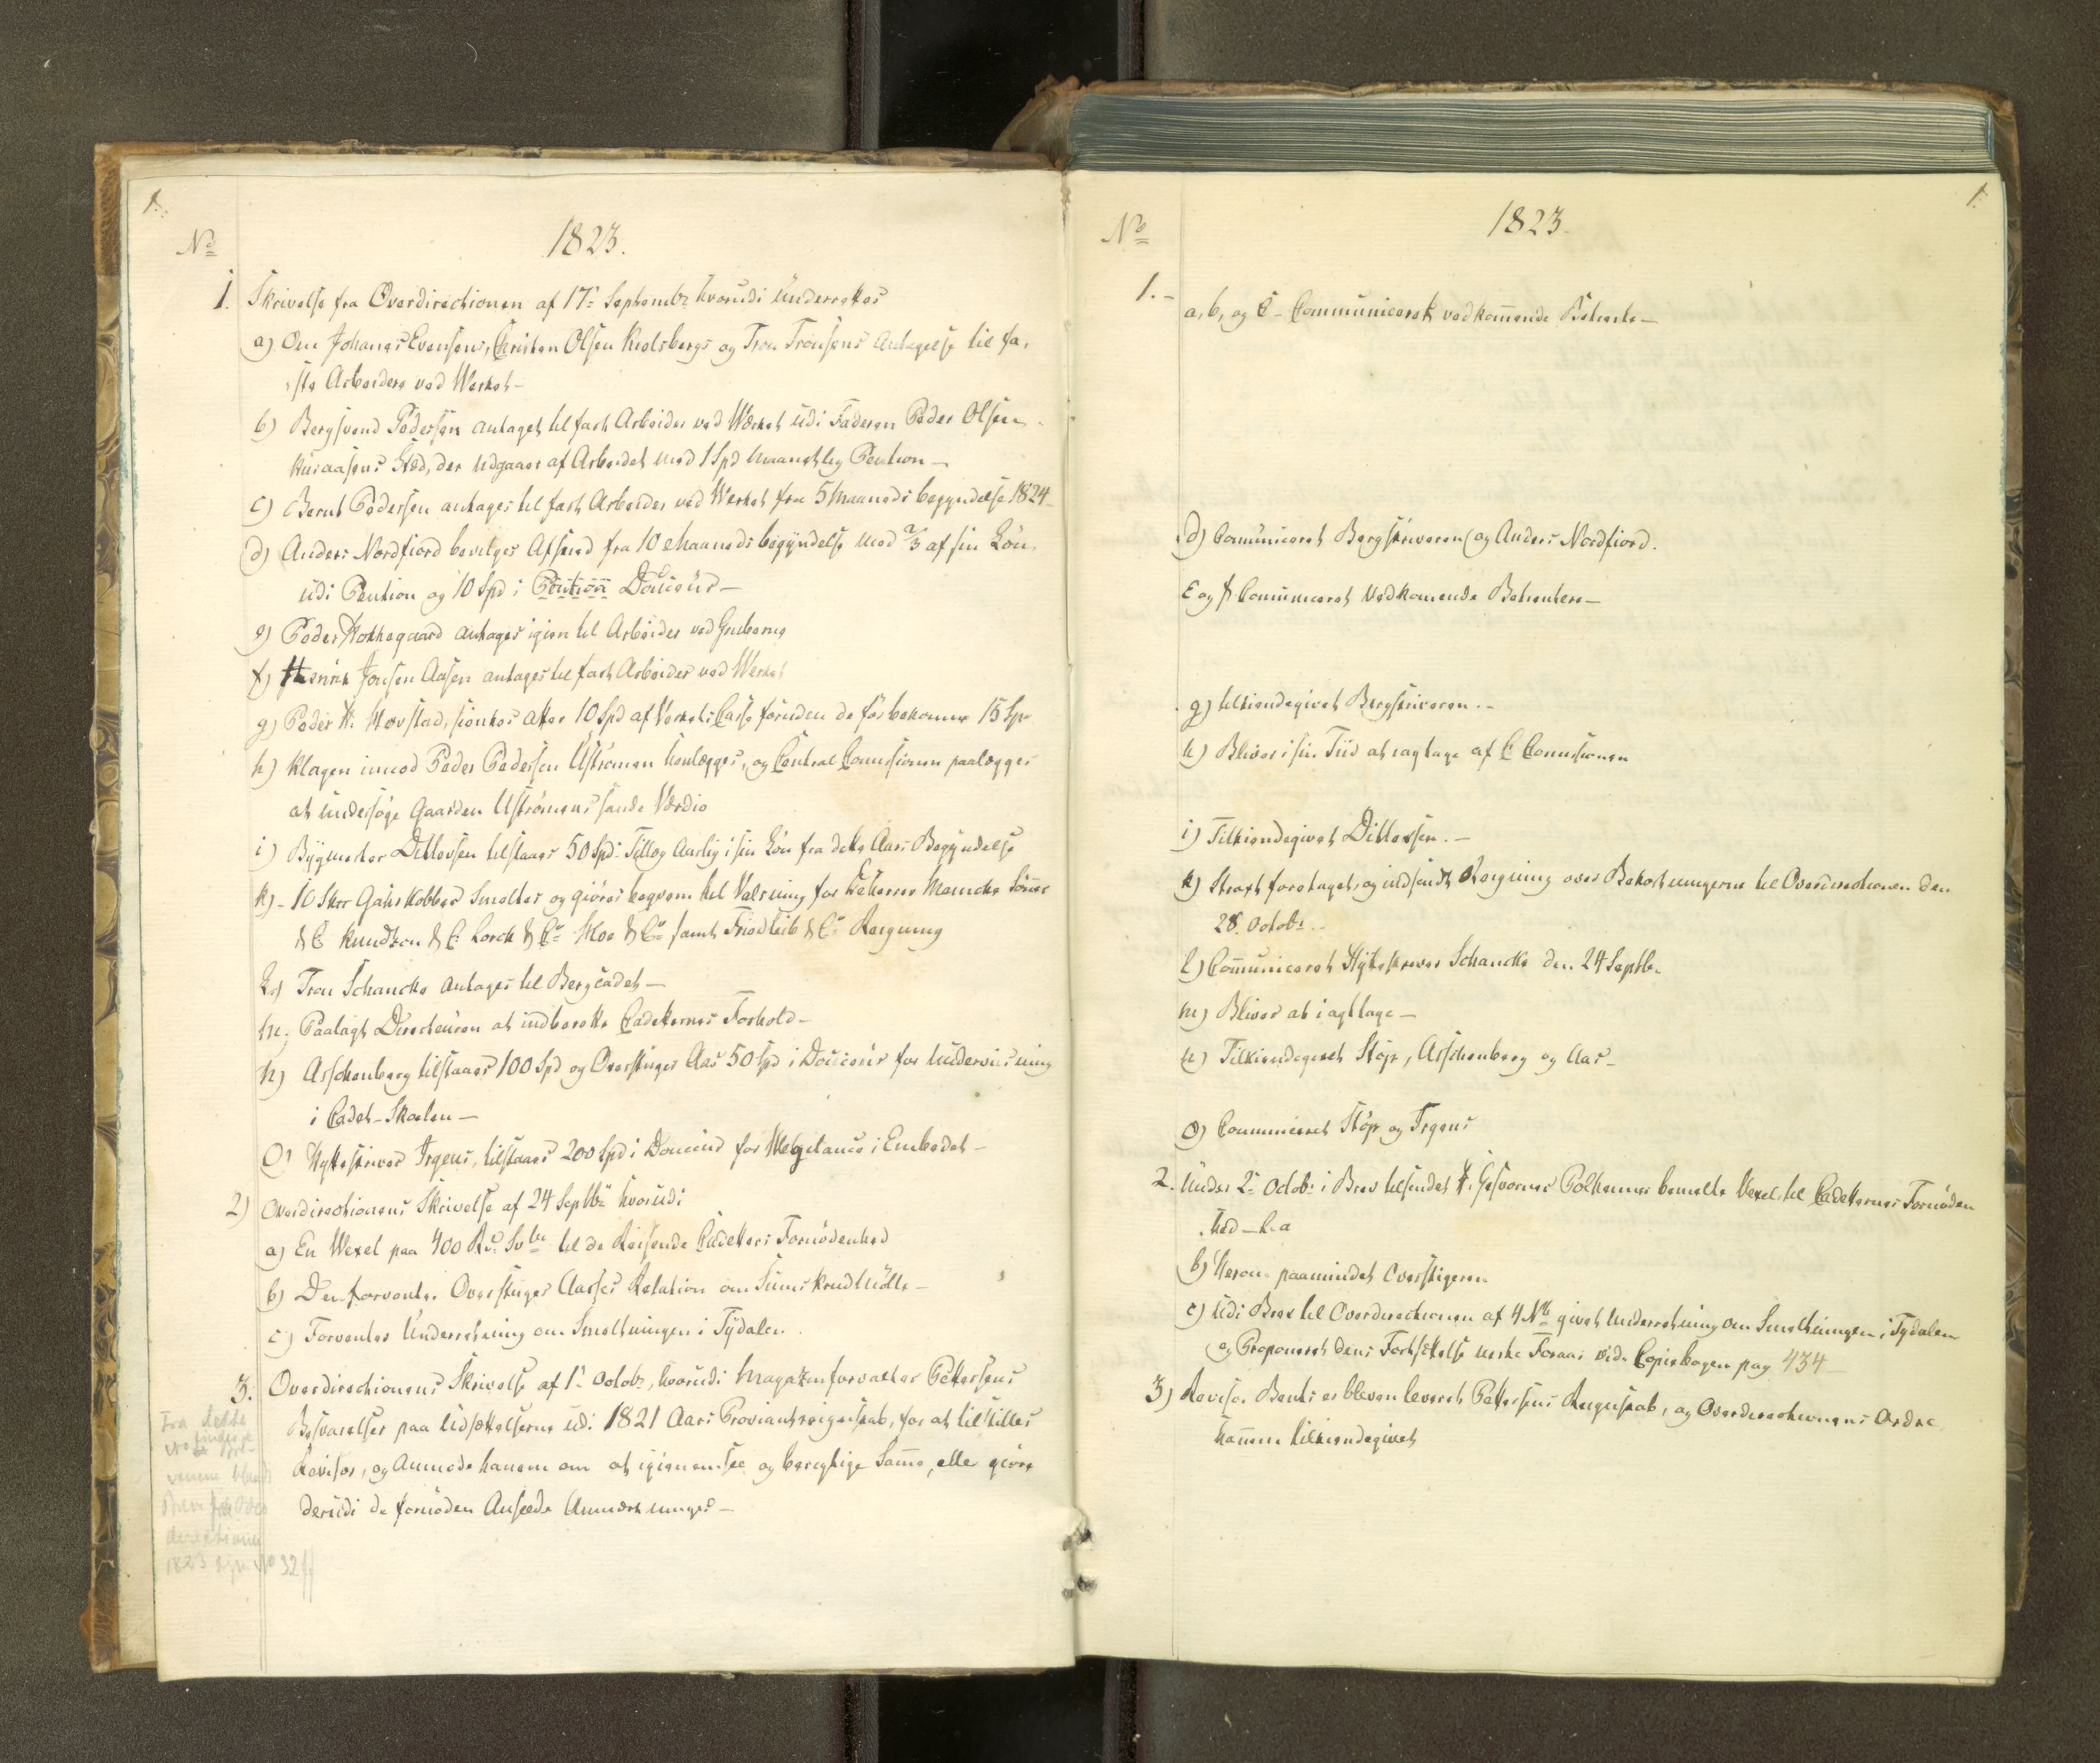 1.
No
1823.
1. Skrivelse fra Overdirectionen af 17de Septembr hvorudi Underrettes
a) Om Johanes Evensens, Christen Olsen Kiolsbergs og Tron Tronsens Antagelse til fa,
ste Arbeidere ved Werket -
b) Bergsvend Pedersen antaget til fast Arbeider ved Werket udi Faderen Peder Olsen
Kuraasens Stæd, der udgaaer af Arbeidet med 1 Spd Maanetlig Pention -
c) Bernt Pedersen antages til fast Arbeider ved Werket fra 5 Maaneds begyndelse 1824 -
d) Anders Nordfiord bevilges Afskeed fra 10 Maaneds begyndelse med 2/3 af sin Lön
udi Pention og 10 Spd i Pention Douceur -
e) Peder Kokkegaard antages igien til Arbeider ved Gruberne
f) Henrik Jonsen Aasen antages til fast Arbeider ved Werket
g) Peder H: Stovstad, sienkes atter 10 Spd af Verkets Casse foruden de för bekomne 15 Sp
h) Klagen imod Peder Pedersen Uströmen henlægges, og Central Comissionen paalægges
at undersöge Gaarden Uströmens sande Værdie
i) Bygmester Ditlevsen tilstaaes 50 Spd Tillæg Aarlig i sin Lön fra dette Aars Begyndelse
k) - 10 Skr Gahrkobber Smeltes og giöres beqvem til Valsning for Herrer Mencke Sönner
& C Knudtzon & C: Lorck & Co Moe & Co samt Friedlieb & C: Regning
l) Tron Schancke antages til Bergcadet -
m; Paalagt Directeuren at indberette Cadetternes Forhold -
n) Aschenberg tilstaaes 100 Spd og Overstiger Aas 50 Spd i Douceur for Underviisning
i Cadet-Skolen -
o) Hytteskriver Irgens, tilstaaes 200 Spd i Douceur for Vigilance i Embedet -
2) Overdirectionens Skrivelse af 24 Septbr hvorudi
a) En Wexel paa 400 Rd Svbr til de Reisende Cadetters Fornödenhed
b) Der forventes Overstiger Aases Relation om Krudtmölle -
c) Forventes Underretning om Smeltningen i Tydalen
3. Overdirectionens Skrivelse af 1de Octobr, hvorudi Magazinforvalter Pettersens
Besvarelser paa Udsættelserne udi 1821 Aars Proviantregnskab, for at tilstilles
Revisor, og Anmode hanem om at igienemsee og berigtige Samme, eller giöre
derudi de fornöden Anseede Anmærkninger -
Fra dette
No findes
Breve fra Over
directionen
1823 No 32 ff
1.
No
1823.
1. - a, b, og c - Communiceret vedkommende Betiente -
d) Comuniceret Bergskriveren og Anders Nordfiord.
e og f Comuniceret Vedkomende Betientere -
g) tilkiendegivet Bergskriveren. -
h) Bliver i sin Tiid at iagtage af C Comissionen
i) Tilkiendegivet Ditlevsen. -
k) Strax foretaget, og indsendt Regning over Bekostningerne til Overdirectionen den
28. Octobr.
l) Communiceret Hytteskriver Schancke den 24 Septbr.
m) Bliver at iagttage -
n) Tilkiendegivet Stöp, Aschenberg og Aas -
o) Communiceret Stöp og Irgens
2. Under 2de Octobr i Brev tilsendet H. Geschworner Polhenner bemelte Vexel til Cadetternes Fornöden
hed - L. a
b) Herom paamindet Overstigeren
c) Udi Brev til Overdirectionen af 4 Nbr givet Underretning om Smeltningen i Tydalen
og Proponeret dens Fortsættelse neste Foraar vide Copiebogen pag 434
3) Revisor Bentz er bleven leveret Pettersens Regnskab, og Overdirectionens Ordre
hanem tilkiendegivet